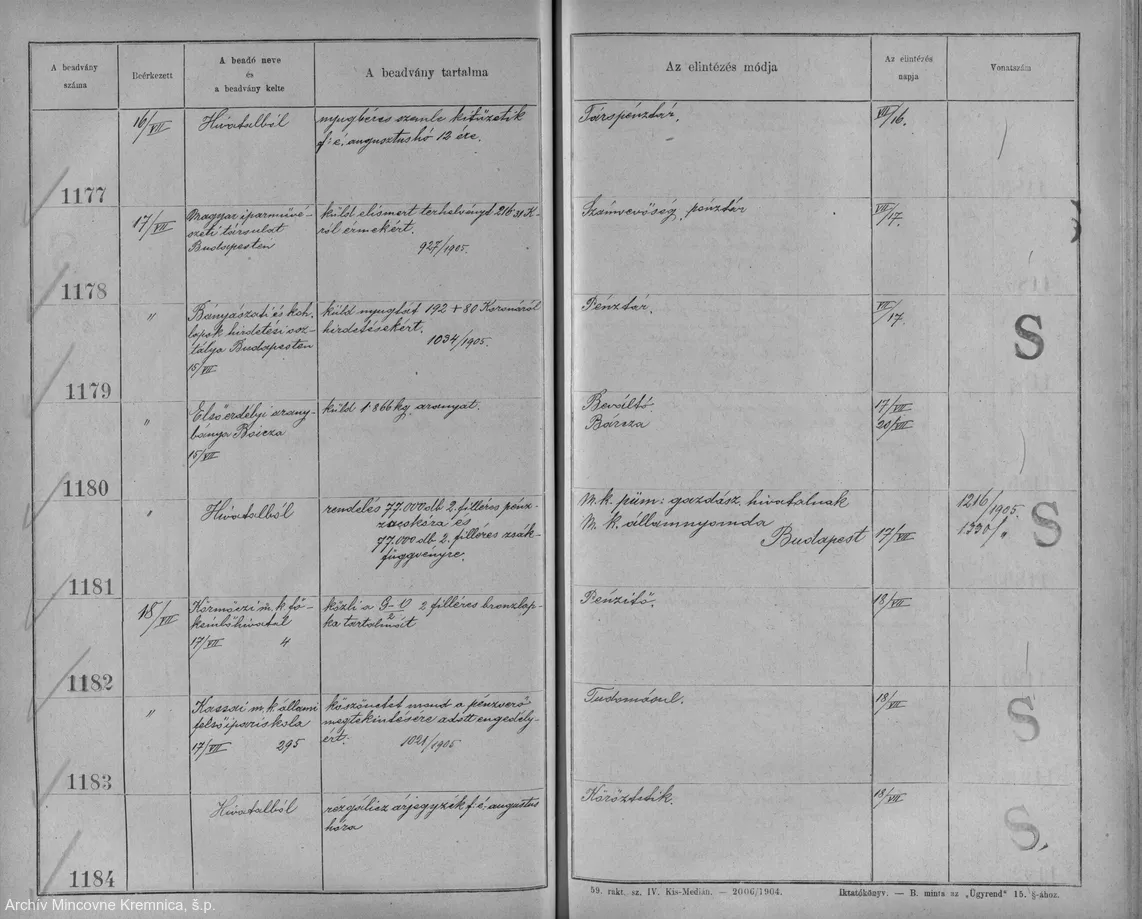 A beadvány
száma
Beérkezett
A beadó neve
és
a beadvány kelte
A beadvány tartalma
Az elintézés módja
Az elintézés
napja
Vonatszám
16/VII
Hivatalból
nyugbéres szemle kitüzetik
f. é. augusztushó 12 ére.
Társpénztár.
VII/16.
1177
17/VII
Magyar iparművé-
szeti társulat
Budapesten
küld elismert terhelvényt 216.31 K-
ról érmekért.
927/1905.
Számvevőség, pénztár
VII/17.
1178
"
Bányászati és koh.
lapok hirdetési osz-
tálya Budapesten
15/VII
küld nyugtát 192 + 80 Koronáról
hirdetésekért.
1034/1905.
Pénztár.
VII/17.
S
1179
"
Első erdélyi arany-
bánya Boicza
15/VII
küld 1.866 kg. aranyat.
Beváltó
17/VII
20/VII
1180
"
Hivatalból
rendelés 77.000 db 2. filléres pénz-
zacskóra és
77.000 db 2. filléres zsák-
függvényre.
M. k. püm: gazdász. hivatalnak
M. k. államnyomda
Budapest
17/VII
1216/1905.
1330/"
S
1181
18/VII
Körmöczi m. k. fő-
kémlőhivatal
17/VII 4
közli a G-V/2 2 filléres bronzlap-
ka tartalmát
Pénzitő.
18/VII
1182
"
Kassai m. k. állami
felső ipariskola
17/VII 295
köszönetet mond a pénzverő
megtekintésére adott engedély-
ért.
1021/1905
Tudomásul.
18/VII
S
1183
Hivatalból
rézgálicz árjegyzék f. é. augustus
hóra
Köröztetik.
18/VII
S.
1184
59. rakt. sz. IV. Kis-Medián. — 2006/1904.
Iktatókönyv. — B. minta az „Ügyrend" 15. §-ához.
Archív Mincovne Kremnica, š.p.